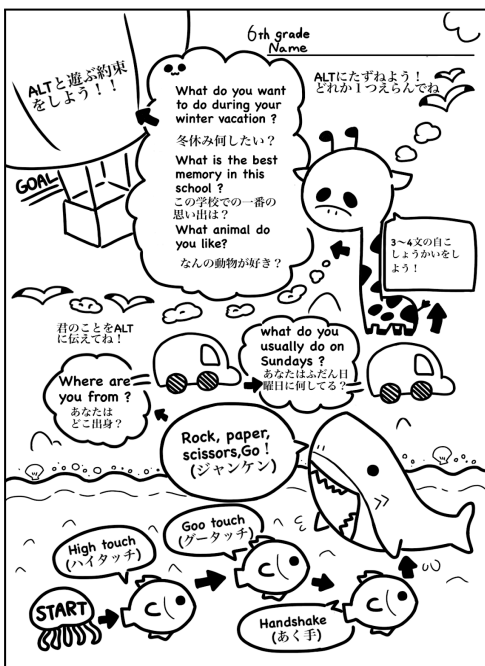 6th grade
Name
ALTと遊ぶ約束
をしよう！！
What do you want
to do during your
winter vacation ?
冬休み何したい？
What is the best
memory in this
school ?
この学校での一番の
思い出は？
What animal do
you like?
なんの動物が好き？
ALTにたずねよう！
どれか１つえらんでね
GOAL
3〜4文の自こ
しょうかいをし
よう！
君のことをALT
に伝えてね！
what do you
usually do on
Sundays ?
あなたはふだん日
曜日に何してる？
Where are
you from ?
あなたは
どこ出身？
Rock, paper,
scissors,Go！
(ジャンケン)
Goo touch
(グータッチ)
High touch
(ハイタッチ)
START
Handshake
(あく手)